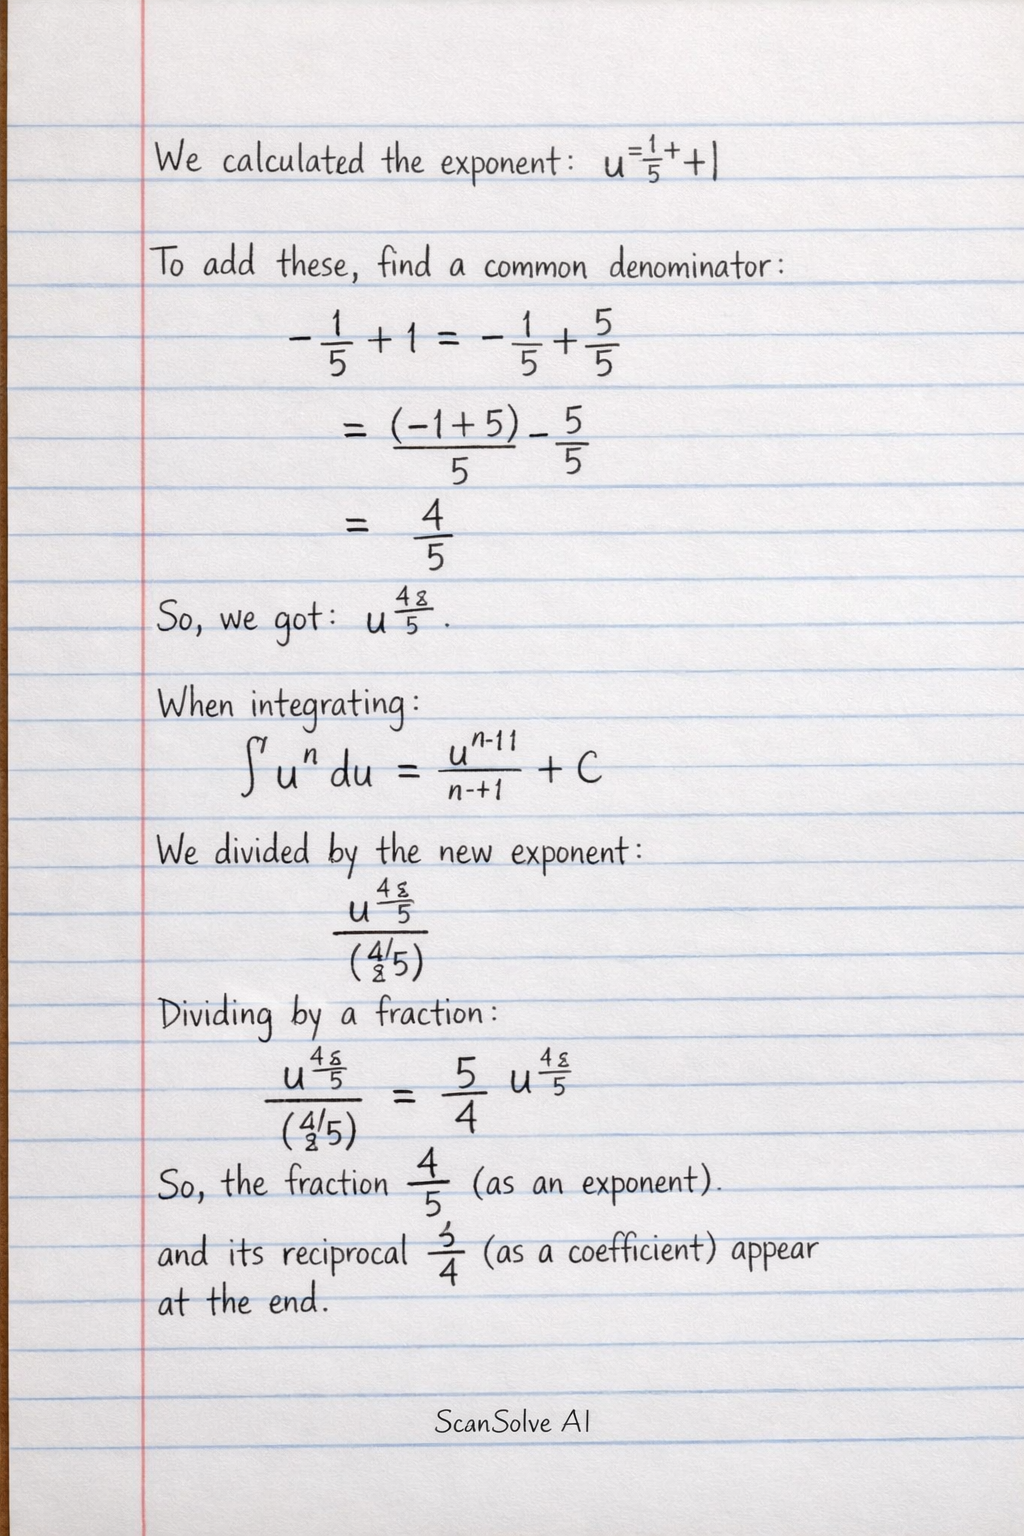 We calculated the exponent: u^{=\frac{1}{5}+}+|
To add these, find a common denominator:
-\frac{1}{5} + 1 = -\frac{1}{5} + \frac{5}{5}
= \frac{(-1+5)}{5} - \frac{5}{5}
= \frac{4}{5}
So, we got: u^{\frac{48}{5}}.
When integrating:
∫u^n du = \frac{u^{n-11}}{n-+1} + C
We divided by the new exponent:
\frac{u^{\frac{48}{5}}}{(4/5)}
Dividing by a fraction:
\frac{u^{\frac{48}{5}}}{(4/5)} = \frac{5}{4} u^{\frac{48}{5}}
So, the fraction \frac{4}{5} (as an exponent).
and its reciprocal \frac{5}{4} (as a coefficient) appear
at the end.
ScanSolve AI